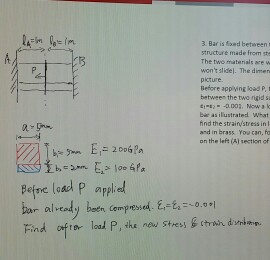 l_A=1m l_B=1m
A B
P
a=5mm
b₁=9mm E₁=200GPa
b₂=2mm E₂=100GPa
Before load P applied
bar already been compressed. ε₁=ε₂=-0.001
Find after load P, the new stress & strain distribution.
3. Bar is fixed between
structure made from ste
The two materials are w
won't slide). The dimen
picture.
Before applying load P, t
between the two rigid su
ε₁=ε₂ = -0.001. Now a lo
bar as illustrated. What
find the strain/stress in l
and in brass. You can, fo
on the left (A) section of